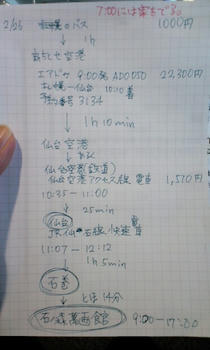 7:00には家をでる。
2/25 札幌のバス 1000円
1h
新ちとせ空港
エアドゥ 9:00発 ADO50 22,300円
札幌→仙台 10:10着
予約番号 3134
1h 10min
仙台空港
あるく
仙台空港(鉄道)
仙台空港アクセス線 電車 1,570円
10:35 - 11:00
25min
仙台
JR仙石線 快速 電車
11:07 - 12:12
1h 5min
石巻
とほ 14分
石ノ森萬画館 9:00-17:00